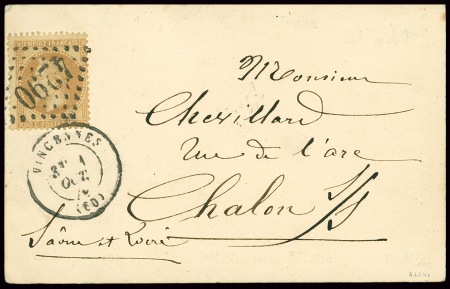 EMPIRE FRANÇAIS
4290
Monsieur
Chevillard
VINCENNES
1
OCT
(60)
rue de l'arc
Chalon S/S
Saône et Loire